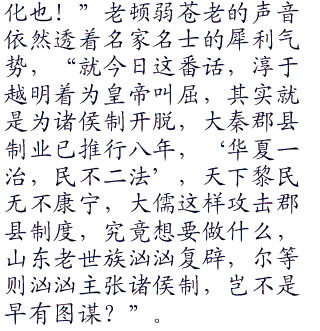 化也！”老顿弱苍老的声音
依然透着名家名士的犀利气
势，“就今日这番话，淳于
越明着为皇帝叫屈，其实就
是为诸侯制开脱，大秦郡县
制业已推行八年，‘华夏一
治，民不二法’　天下黎民
无不康宁，大儒这样攻击郡
县制度，究竟想要做什么，
山东老世族汹汹复辟，尔等
则汹汹主张诸侯制，岂不是
早有图谋？”。